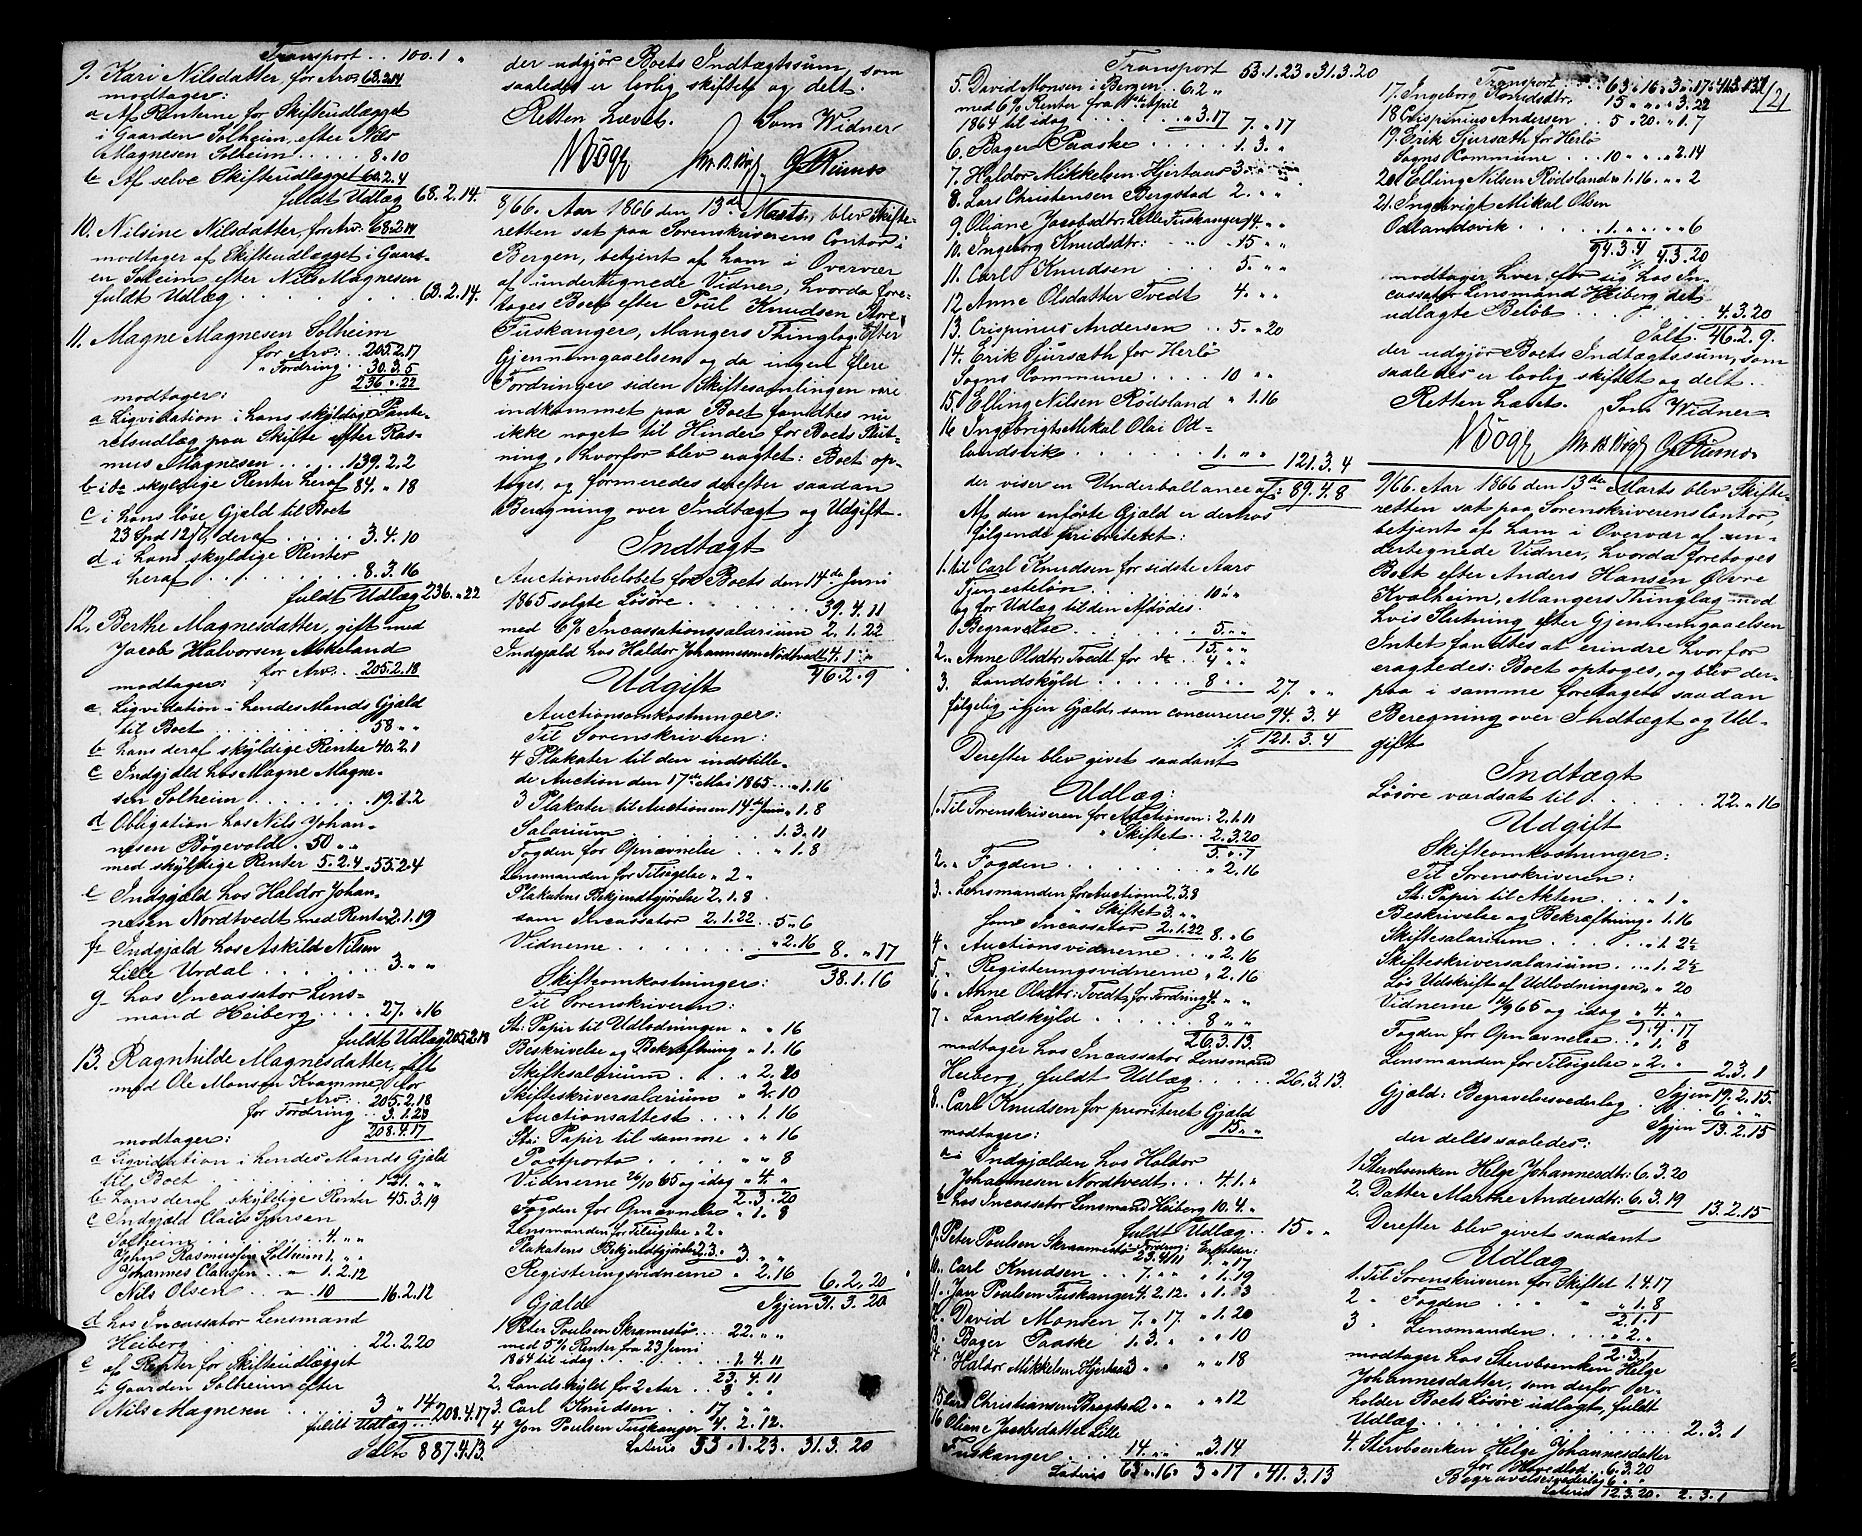 Transport .. 100.1 "
9. Kari Nilsdatter, for Arv 63.2.14
modtager:
a Af Renterne for Skifteudlægget
i Gaarden Solheim, efter Nils
Magnesen Solheim ..... 8.10
b Af selve Skifteudlægget 60.2.4
fuldt Udlæg 68.2.14.
10. Nilsine Nilsdatter, for Arv 68.2.14
modtager af Skifteudlægget i Gaard-
en Solheim efter Nils Magnesen
fuldt Udlæg ........ 63.2.14.
11. Magne Magnesen Solheim
for Arv .. 205.2.17
" Fordring .. 30.3.5
236 " 22
modtager:
a Liqvidation i hans skyldige Pante-
retsudlæg paa Skifte efter Ras-
mus Magnesen ..... 139.2.2
b ibm skyldige Renter heraf 84. " 18
c i hans løse Gjæld til Boet
23 Spd 12 β, deraf ..... 3.4.10
d i hans skyldige Renter
heraf ........... 8.3.16
fuldt Udlæg 236. " 22
12. Berthe Magnesdatter, gift med
Jacob Halvorsen Askeland
for Arv .. 205.2.18
modtager:
a Liqvidation i hendes Mands Gjæld
til Boet .......... 58 " "
b hans deraf skyldige Renter 40.2.1
c Indgjæld hos Magne Magne-
sen Solheim ........ 19.1.2
d Obligation hos Nils Johan-
nesen Bøgevold . 50 " "
med skyldige Renter 5.2.4 . 55.2.4
e Indgjæld hos Haldor Johan-
nesen Nordtvedt med Renter 2.1.19
f Indgjæld hos Askild Nilsen
Lille Urdal ....... 3. " "
g hos Incassator Lens-
mand Heiberg .... 27. " 16
fuldt Udlæg 205.2.18
13. Ragnhilde Magnesdatter, gift
med Ole Monsen Kvamme, for
Arv .. 205.2.18
for Fordring .. 3.1.23
208.4.17
modtager:
a Liqvidation i hendes Mands Gjæld
til Boet ......... 121. " "
b hans deraf skyldige Renter 45.3.19
c Indgjæld Claus Sjursen
Solheim ........ 4. " "
John Rasmussen Solheim 1. " "
Johannes Clausen .. " 1.2.12
Nils Olsen .. " 10 16.2.12
d hos Incassator Lensmand
Heiberg ......... 22.2.20
e af Renter for Skifteudlægget
i Gaarden Solheim efter
Nils Magnesen ..... 3 " 14
fuldt Udlæg ... 208.4.17
Salt. 887.4.13.
der udgjør Boets Indtægtssum, som
saaledes er lovlig skiftet og delt.
Retten hævet. Som Vidner
8/66. Aar 1866 den 13de Marts, blev Skifte-
retten sat paa Sorenskriverens Contor i
Bergen, betjent af ham i Overvær
af undertegnede Vidner, hvorda fore-
toges Boet efter Poul Knudsen Store
Fuskanger, Mangers Thinglag. Efter
Gjennemgaaelsen og da ingen flere
Fordringer siden Skiftesamlingen vare
indkommet paa Boet fandtes nu
ikke noget til Hinder for Boets Slut-
ning, hvorfor blev eragtet: Boet op-
tages, og formeredes derefter saadan
Beregning over Indtægt og Udgift.
Indtægt
Auctionsbeløbet for Boets den 14de Juni
1865 solgte Løsøre ........ 39.4.11
med 6% Incassationssalarium 2.1.22
Indgjæld hos Haldor Johannesen Nodtvedt 4.1 "
46.2.9
Udgift
Auctionsomkostninger:
Til Sorenskriveren:
4 Plakater til den indstille-
de Auction den 17de Mai 1865 .. " 1.16
3 Plakater til Auctionen 14de Juni " 1.8
Salarium ......... 1.3.11
Fogden for Opnævnelse .. " 1.8
Lensmanden for Tilsigelse " 2 "
Plakatens Bekjendtgjørelse 2.1.8
som Incassator 2.1.22 .. 5 " 6
Vidnerne ......... " 2.16 8. " 17
38.1.16
Skifteomkostninger:
Til Sorenskriveren:
St: Papir til Udlodningen " " 16
Beskrivelse og Bekræftning " 1.16
Skiftesalarium .... " 2.20
Skifteskriversalarium " 2.10
Auctionsattest ... " 1.16
St: Papir til samme " " 16
Postporto ..... " " 8
Vidnerne 26/10 65 og idag " 4. "
2.3.20
Fogden for Opnævnelse " 1.8
Lensmanden for Tilsigelse " 2 "
Plakatens Bekjendtgjørelse 2.3. " 3 " "
Registeringsvidnerne " 2.16 6.2.20
Igjen 31.3.20
Gjæld
1. Peter Poulsen Skramestø ... 22. " "
med 5% Renter fra 23 Juni
1864 til idag ........ 1.4.11
23.4.11
2. Landskyld for 2 Aar .. 8 " "
3. Carl Knudsen .. 17 " "
4 Jon Poulsen Fuskanger 4.2.12.
Lateris 53 " 1.23. 31.3.20
Transport 53.1.23 " 31.3.20
5. David Monsen i Bergen .. 6.2 "
med 6% Renter fra Wte April
1864 til idag ...... " 3.17 7. " 17
6. Bager Paaske ....... 1.3. "
7. Haldor Mikkelsen Hjertaas 3 " "
8. Lars Christensen Bergstad 2. " "
9. Oliane Jacobsdtr. Lille Fuskanger 14. " "
10. Ingeborg Knudsdtr: " 15 " "
11. Carl Knudsen ..... 5. " "
12. Anne Olsdatter Tvedt 4. " "
13. Crispinus Andersen .. 5. " 20
14. Erik Sjursæth for Herlø
Sogns Commune .... 10 " "
15. Elling Nilsen Rødsland " 1.16
16 Ingebrigt Mikal Olai Od-
landsvik ........ 1. " " 121.3.4
der viser en Underballance af: 89.4.8
Af den anførte Gjæld er derhos
følgende prioriteret:
1. til Carl Knudsen for sidste Aars
Tjenesteløn ....... 10 " "
og for Udlæg til den Afdødes
Begravelse ....... 5. " "
15. " "
2. " Anne Olsdtr: Tvedt for do .. 4 " "
3. Landskyld ....... 8 " " 27. " "
følgelig igjen Gjæld, som concurerer 94.3.4
121.3.4
Derefter blev givet saadant
Udlæg:
1. Til Sorenskriveren for Auctionen: 2.1.11
" Skiftet .. 2.3.20
5. " 7
2. " Fogden ........ " 2.16
3. " Lensmanden for Auction 2.3.8
" Skiftet 3. " "
som Incassator 2.1.22 8. " 6
4. " Auctionsvidnerne .. " 2.16
5. " Registeringsvidnerne " 2.16
6 " Anne Olsdtr: Tvedt, for Fordring 4. " "
7 " Landskyld ....... 8 " "
26.3.13
modtager hos Incassator Lensmand
Heiberg, fuldt Udlæg ..... 26.3.13.
8. Carl Knudsen for prioriteret Gjæld
15 " "
modtager:
a Indgjælden hos Haldor
Johannesen Nordtvedt ... 4.1. "
b hos Incassator Lensmand Heiberg 10.4. "
fuldt Udlæg ... 15 " "
Fordring: Erholder:
9. Peter Poulsen Skramestø 23.4.11 1. " 17
10. Carl Knudsen ... 7. " " " 1.19
11. Jon Poulsen Fuskanger 4.2.12. " 1.3
12. David Monsen 7. " 17. " 1.20
13. Bager Paaske 1.3. " " " 10
14. Haldor Mikkelsen Hjertaas 3 " " " 18
15. Lars Christiansen Bragstad 2. " " " " 12
16 Oliane Jacobsdatter Lille
Fuskanger ....... 14. " " " 3.14
Lateris 63 " 16 " 3 " 17 " 41.3.13
Transport 63 " 16 " 3 " 17 " 41.3.13 121
17. Ingeborg Knudsdtr. 15 " " " 3.22
18 Crispinius Andersen .. 5 " 20 " 1.7
19. Erik Sjursæth for Herlø
Sogns Commune ... 10 " " " 2.14
20. Elling Nilsen Rødsland " 1.16 " " 2
21. Ingebrigt Mikal Olsen
Odlandsvik ...... 1. " " " " 6
94.3.4 4.3.20
modtager hver for sig hos In-
cassator Lensmand Heiberg det
udlagte Beløb ......... 4.3.20
Salt. 46.2.9.
der udgjør Boets Indtægtssum, som
saaledes er lovlig skiftet og delt.
Retten hævet. Som Vidner
9/66. Aar 1866 den 13de Marts blev Skifte-
retten sat paa Sorenskriverens Contor,
betjent af ham i Overvær af un-
dertegnede Vidner, hvorda foretoges
Boet efter Anders Hansen Øvre
Kvalheim, Mangers Thinglag med
hvis Slutning efter Gjennemgaaelsen
Intet fandtes at erindre hvorfor
eragtedes: Boet optoges, og blev der-
paa i samme foretaget saadan
Beregning over Indtægt og Ud-
gift
Indtægt
Løsøre værdsat til ........ 22. " 16
Udgift
Skifteomkostninger:
Til Sorenskriveren:
St: Papir til Akten .... " 1 "
Beskrivelse og Bekræftning " 1.16
Skiftesalarium ...... " 1.2
Skifteskriversalarium ... " 1.2
Løs Udskrift af Udlodningen " " 20
Vidnerne 14/9 65 og idag " 4. "
1.4.17
Fogden for Opnævnelse .. " 1.8
Lensmanden for Tilsigelse " 2. " 2.3.1
Igjen 19.2.15.
Gjæld: Begravelsesvederlag . 6 " "
Igjen 13.2.15
der deltes saaledes:
1. Stervboenken Helge Johannesdtr: 6.3.20
2. Datter Marthe Andersdtr: 6.3.19 13.2.15
Derefter blev givet saadant
Udlæg
1. Til Sorenskriveren for Skiftet 1.4.17
2 " Fogden .. " " 1.8
2.1.1
3 " Lensmanden ..... " 2. "
2.3.1
modtager hos Stervboenken Helge
Johannesdatter, som derfor be-
holder Boets Løsøre udlagt, fuldt
Udlæg .............. 2.3.1
4. Stervboenken Helge Johannesdatter
for Hovedlod .. 6.3.20
Begravelsesvederlag 6 " "
Lateris 12.3.20. 2.3.1